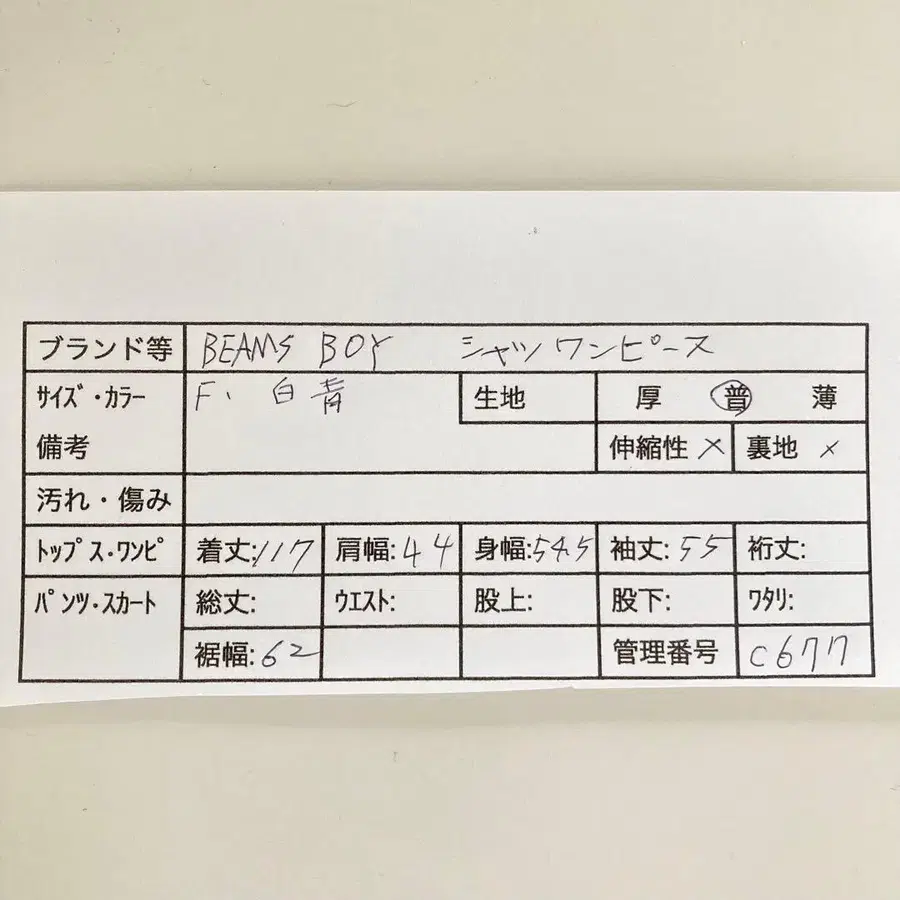 ブランド等 BEAMS BOY シャツワンピース
サイズ・カラー F、白青 生地 厚 普 薄
備考 伸縮性 × 裏地 ×
汚れ・傷み
トップス・ワンピ 着丈:117 肩幅:44 身幅:54.5 袖丈:55 裄丈:
パンツ・スカート 総丈: ウエスト: 股上: 股下: ワタリ:
裾幅:62 管理番号 C677